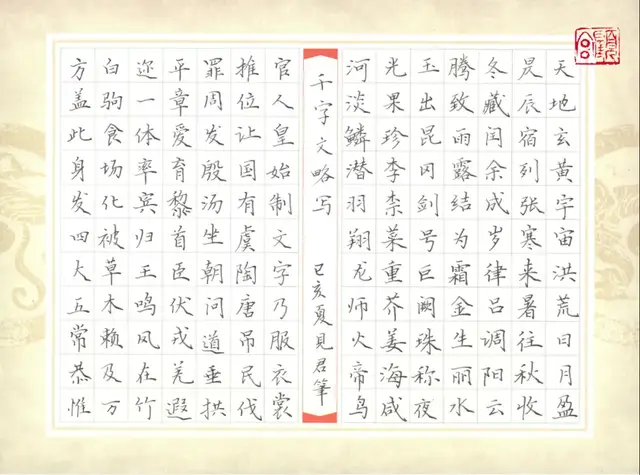 天地玄黄宇宙洪荒日月盈
昃辰宿列张寒来暑往秋收
冬藏闰余成岁律吕调阳云
腾致雨露结为霜金生丽水
玉出昆冈剑号巨阙珠称夜
光果珍李柰菜重芥姜海咸
河淡鳞潜羽翔龙师火帝鸟
千字文略写 己亥夏见君筆
官人皇始制文字乃服衣裳
推位让国有虞陶唐吊民伐
罪周发殷汤坐朝问道垂拱
平章爱育黎首臣伏戎羌遐
迩一体率宾归王鸣凤在竹
白驹食场化被草木赖及万
方盖此身发四大五常恭惟